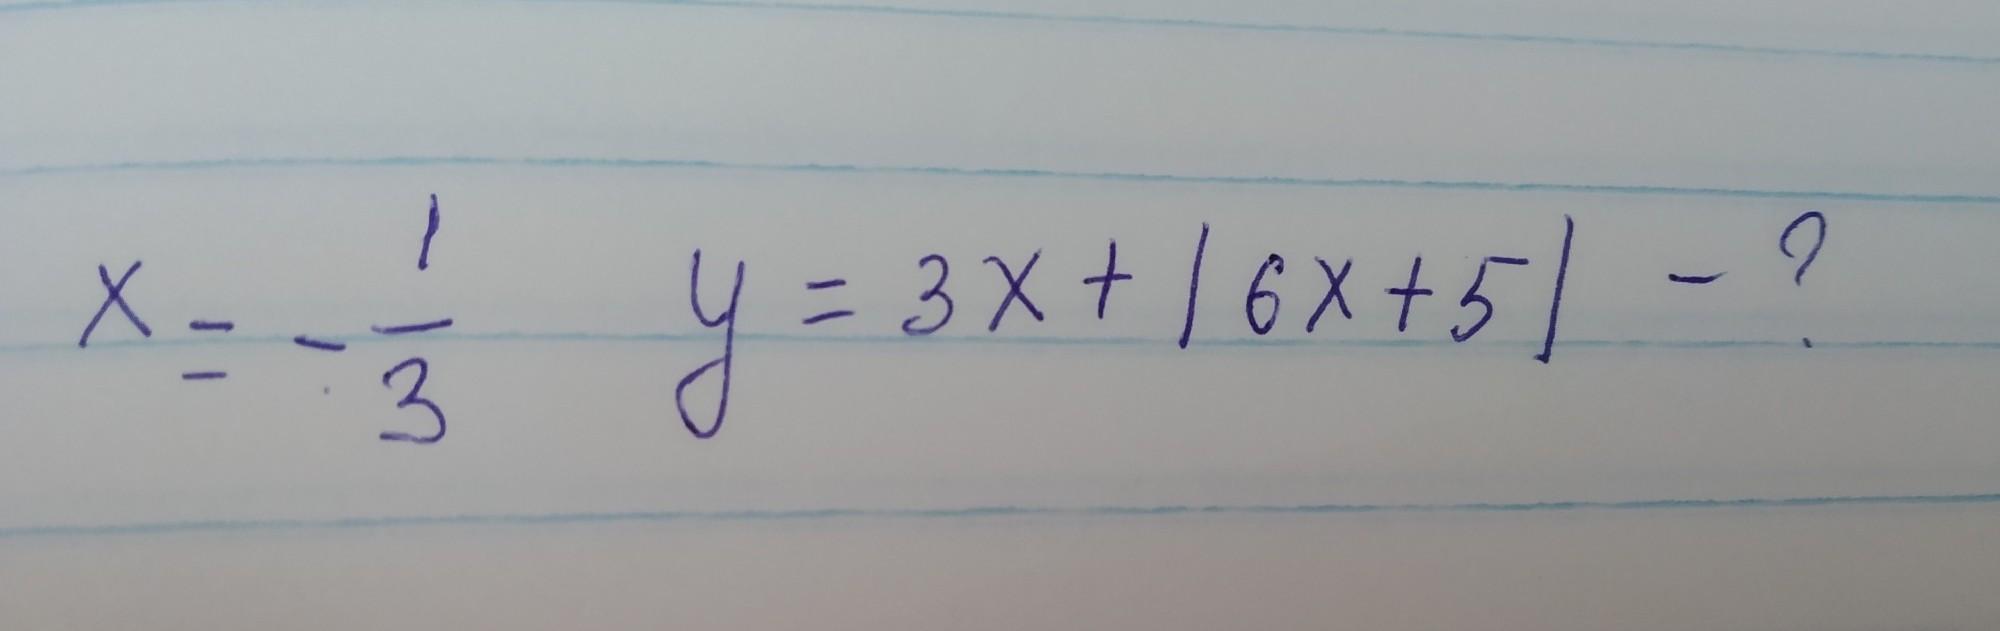 x = - 1/3 y = 3x + |6x+5| - ?